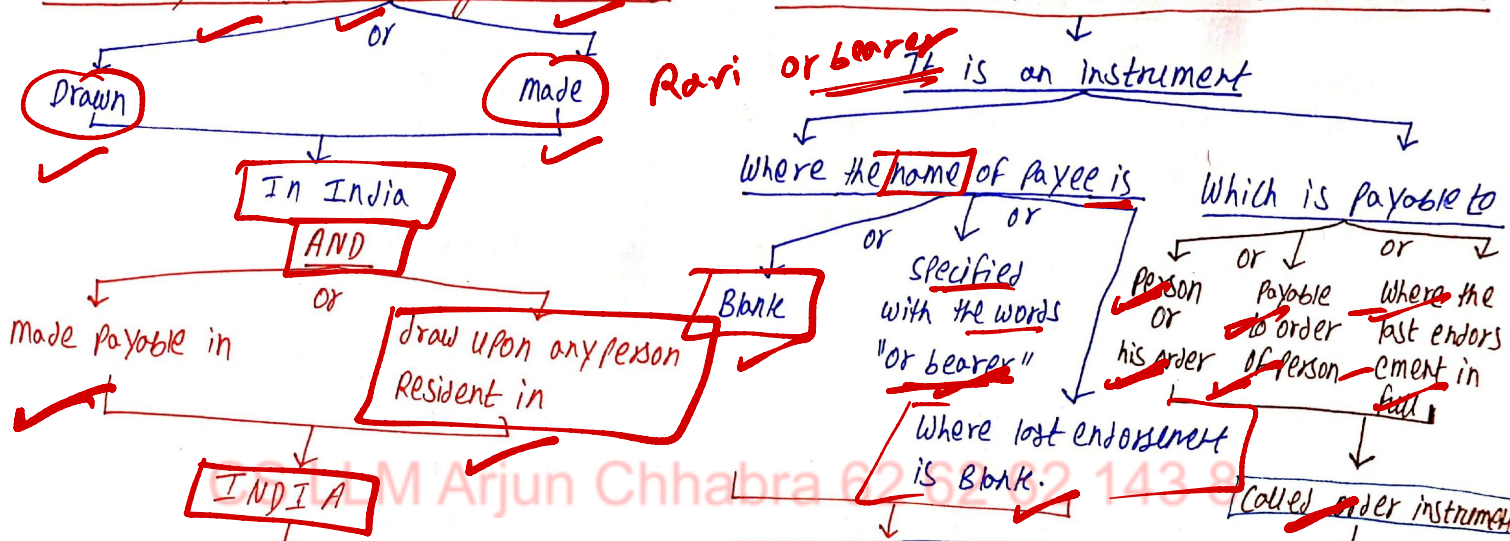 or
Drawn
made
In India
AND
or
made payable in
draw upon any person
Resident in
INDIA
Ravi or bearer
It is an instrument
Where the name of Payee is
or
or
Blank
specified
with the words
"or bearer"
Where last endorsement
is Blank.
Which is payable to
or
or
Person
or
his order
Payable
to order
of Person
Where the
last endors
ement in
full
Called order instrument
CS LLM Arjun Chhabra 62 62 62 143 8